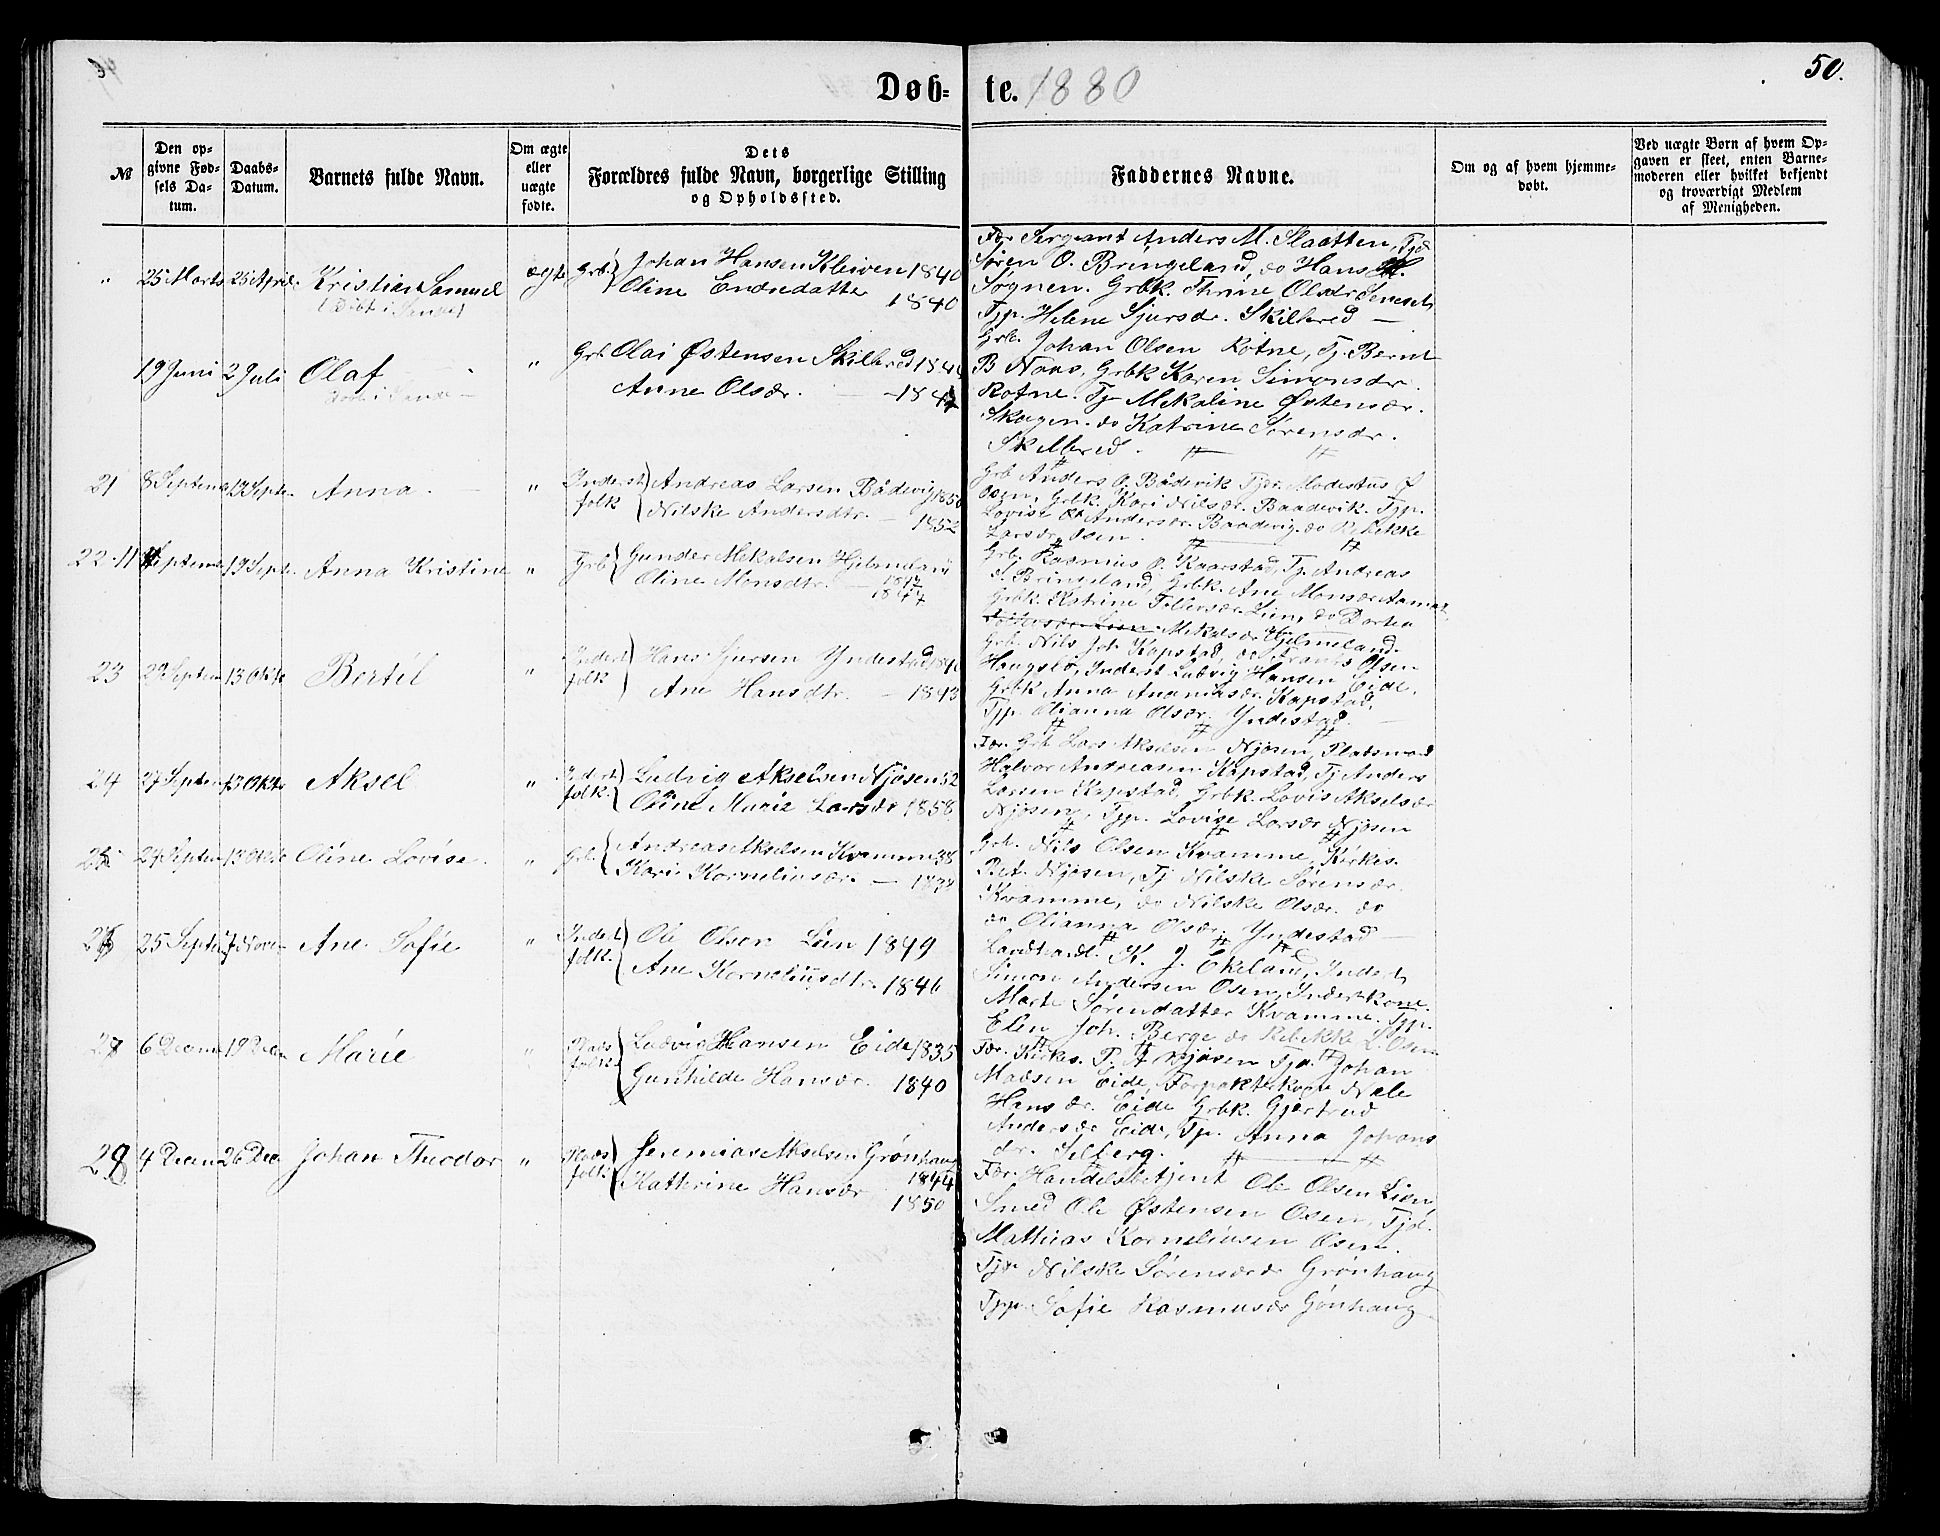 Døb=te. 1880
50.
№
Den op-
givne Fød-
sels Da-
tum.
Daabs-
Datum.
Barnets fulde Navn.
Om ægte
eller
uægte
fødte.
Dets
Forældres fulde Navn, borgerlige Stilling
og Opholdssted.
Faddernes Navne.
Om og af hvem hjemme-
døbt.
Ved uægte Børn af hvem Op-
gaven er skeet, enten Barne-
moderen eller hvilket bekjendt
og troværdigt Medlem
af Menigheden.
" 25 Marts 25 April Kristian Samuel ægte Grb. Johan Hansen Kleiven 1840
Oline Endredatter 1840
Far Sergeant Anders M. Slaatten, Tjd
Søren O. Bringeland, do Hans
Søgnen. Grbk. Thrine Olsdr
Tjp. Helene Sjursdr. Skilbred —
19 Juni 2 Juli Olaf " Grb. Olai Østensen Skilbred
Anne Olsdr.
Grb. Johan Olsen Rotne, Tj. Bernt
B Naas, Grbk Karen Simonsdr.
Rotne. Tj. Mekaline Østensdr.
Skagen. do Katrine Sørensdr.
Skilbred.
21 8 Septem 19 Septe. Anna. " Inderst folk Andreas Larsen Bådevig 1850
Nilske Andersdtr. — 1852
Grb Anders O. Bådevik Tjdr. Modestus Ø
Osen, Grbk. Kari Nilsdr. Baadevik. Tjp.
Lovise Andersdr. Baadevig. do Rebekke
Larsdr. Osen.
22 11 Septem 19 Sept. Anna Kristine " Grb Gunder Mekalsen Hjelmeland
Oline Monsdtr. — 1844
Grb. Rasmus O. Kaarstad, Tj. Andreas
S. Bringeland, Grbk. Ane Monsdr
Grbk. Katrine Tollevsdr. Lien, do Dortea
Mekalsdr Hjelmeland.
23 Septem 13 Okto Bertel " Inderst folk Hans Sjursen Yndestad
Ane Hansdtr. — 1843
Grb. Nils Joh Kapstad, do Frans Olsen
Haugsbø, Inderst Ludvig Hansen Eide,
Grbk Anna Ananiasdr. Kapstad,
Tjp. Olianna Olsdr. Yndestad.
24 27 Septem 13 Okto Aksel " Inderst folk Ludvig Akselsen Njøsen 52
Oline Marie Larsdr 1858
Far. Grb Lars Akselsen Njøsen, Pladsmand
Halvor Andreasen Kapstad, Tj Anders
Larsen Kapstad, Grbk. Lovis Akselsdr
Njøsen, Tjp. Lovise Larsdr Njøsen
25 27 Septem 13 Okto Oline Lovise. " Grb. Andreas Akselsen Kvamme 38
Kari Korneliusdr. —
Grb. Nils Olsen Kvamme, Kirkes.
Pet. Njøsen, Tj Nilske Sørensdr.
Kvamme, do Nilske Olsdr. do
do Olianna Olsdr. Yndestad —
26 25 Septe 7 Nove Ane Sofie " Inderst folk Ole Olsen Lien 1849
Ane Korneliusdtr. 1846
Landhandl. K. J. Ekeland, Inderst
Simon Andersen Osen, Inderstkone
Marte Sørendatter Kvamme. Tjp.
Elen Joh. Berge do Rebekke L. Osen
27 6 Decem 19 Decem Marie " Plads folk Ludvig Hansen Eide 1835
Gunhilde Hansdr. 1840
Far. Kirks. P. A Njøsen Tjd. Johan
Madsen Eide, Forpakterkone Nele
Hansdr. Eide Grbk. Gjertrud
Andersdr Eide, Tjp. Anna Johans
dr. Selberg.
28 4 Decem 26 Dec Johan Theodor " Plads folk Jeremias Akselsen Grønhaug
1844
Kathrine Hansdr 1850
Far. Handelsbetjent Ole Olsen Lien
Smed Ole Østensen Osen, Tjd.
Mathias Korneliusen Osen.
Tjp. Nilske Sørensdr Grønhaug
Tjp. Sofie Rasmusdr Gønhaug